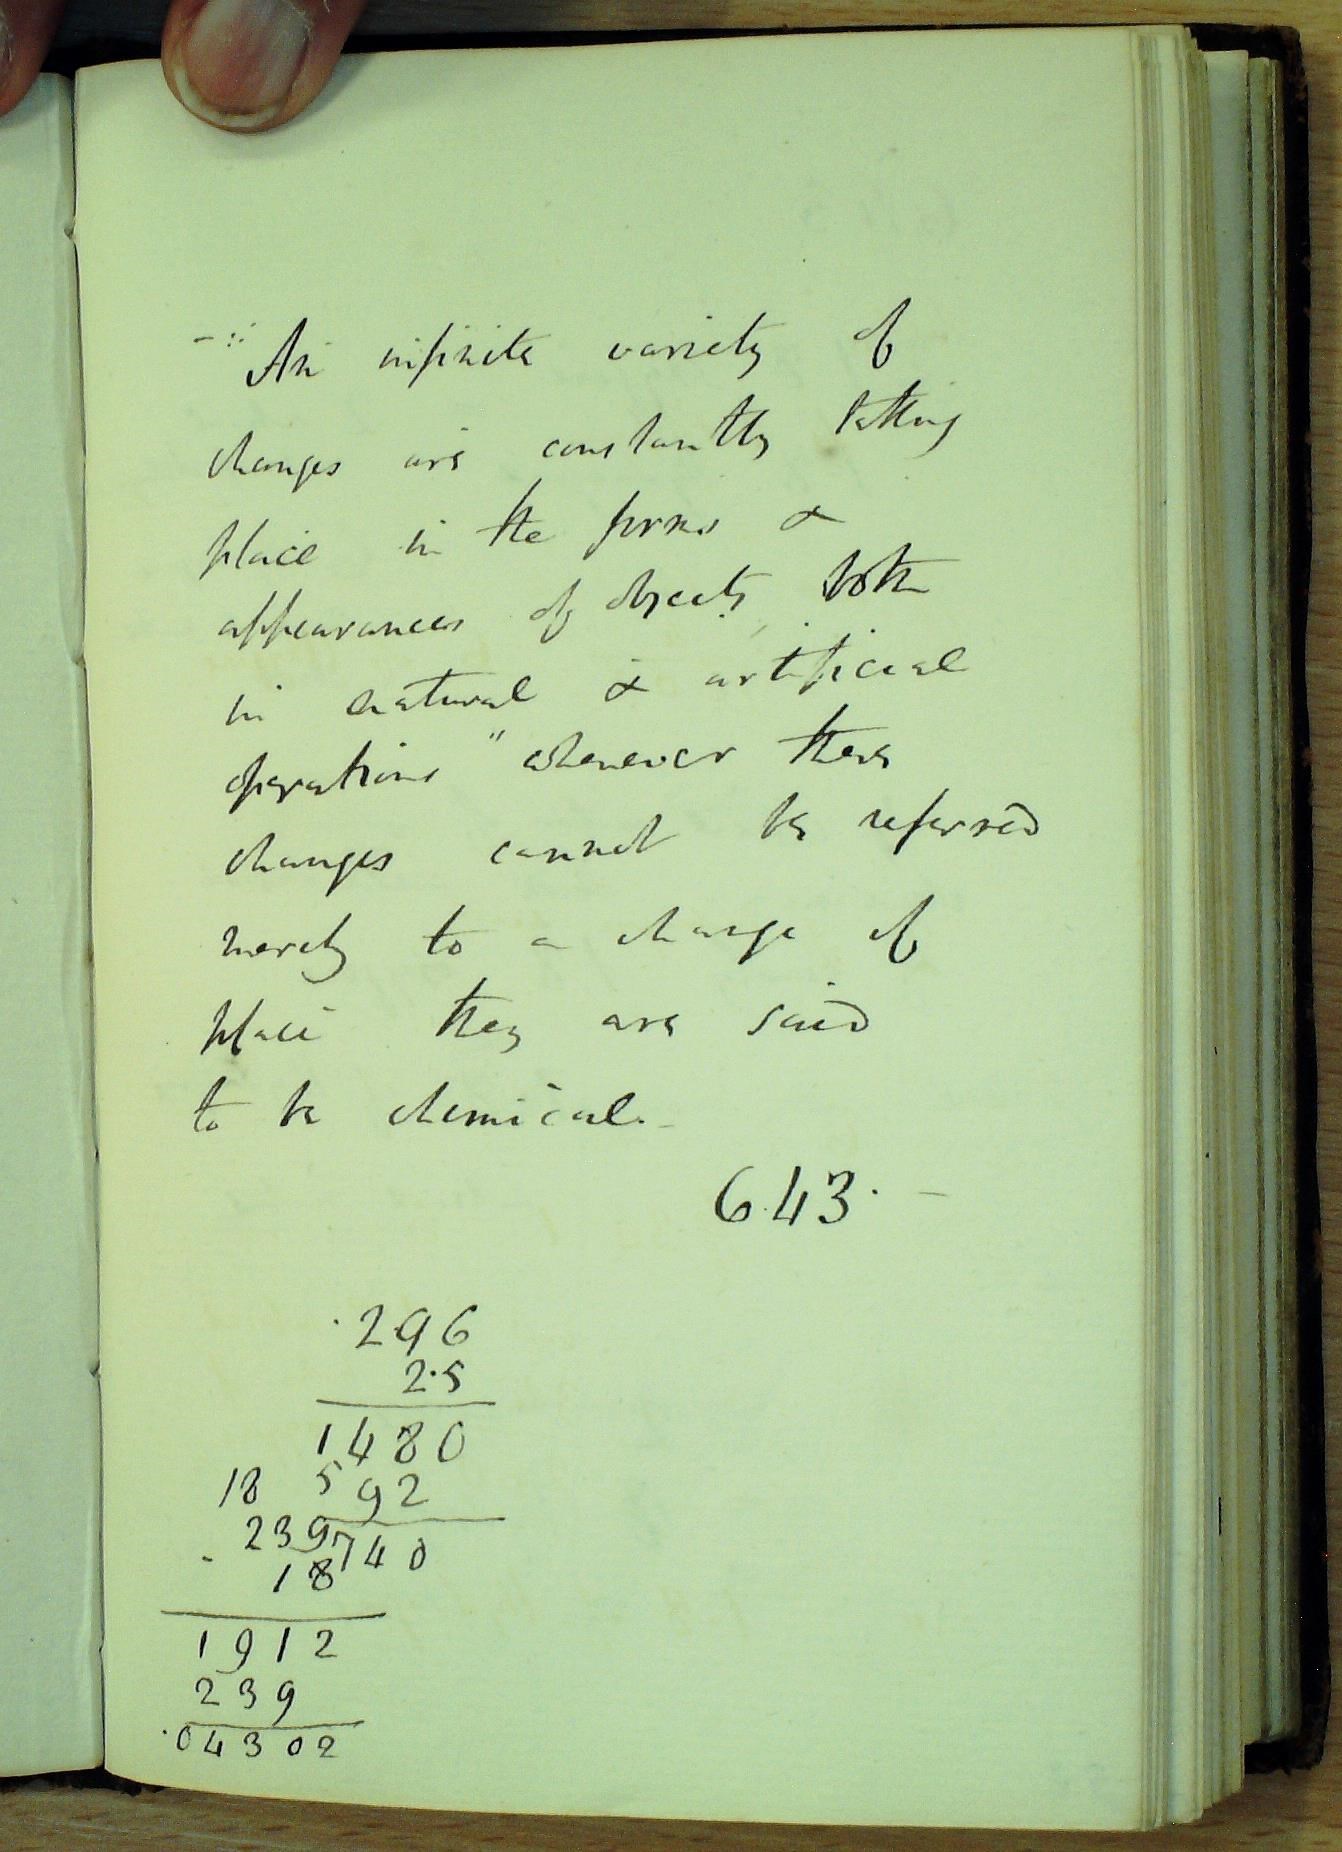 - ∴ An infinite variety of
changes are constantly taking
place in the forms &
appearances of objects both
in natural & artificial
operations " whenever these
changes cannot be referred
merely to a change of
place they are said
to be chemical.-
643. -
.296
2.5
1480
18 592
239 740
18
1912
239
.04302